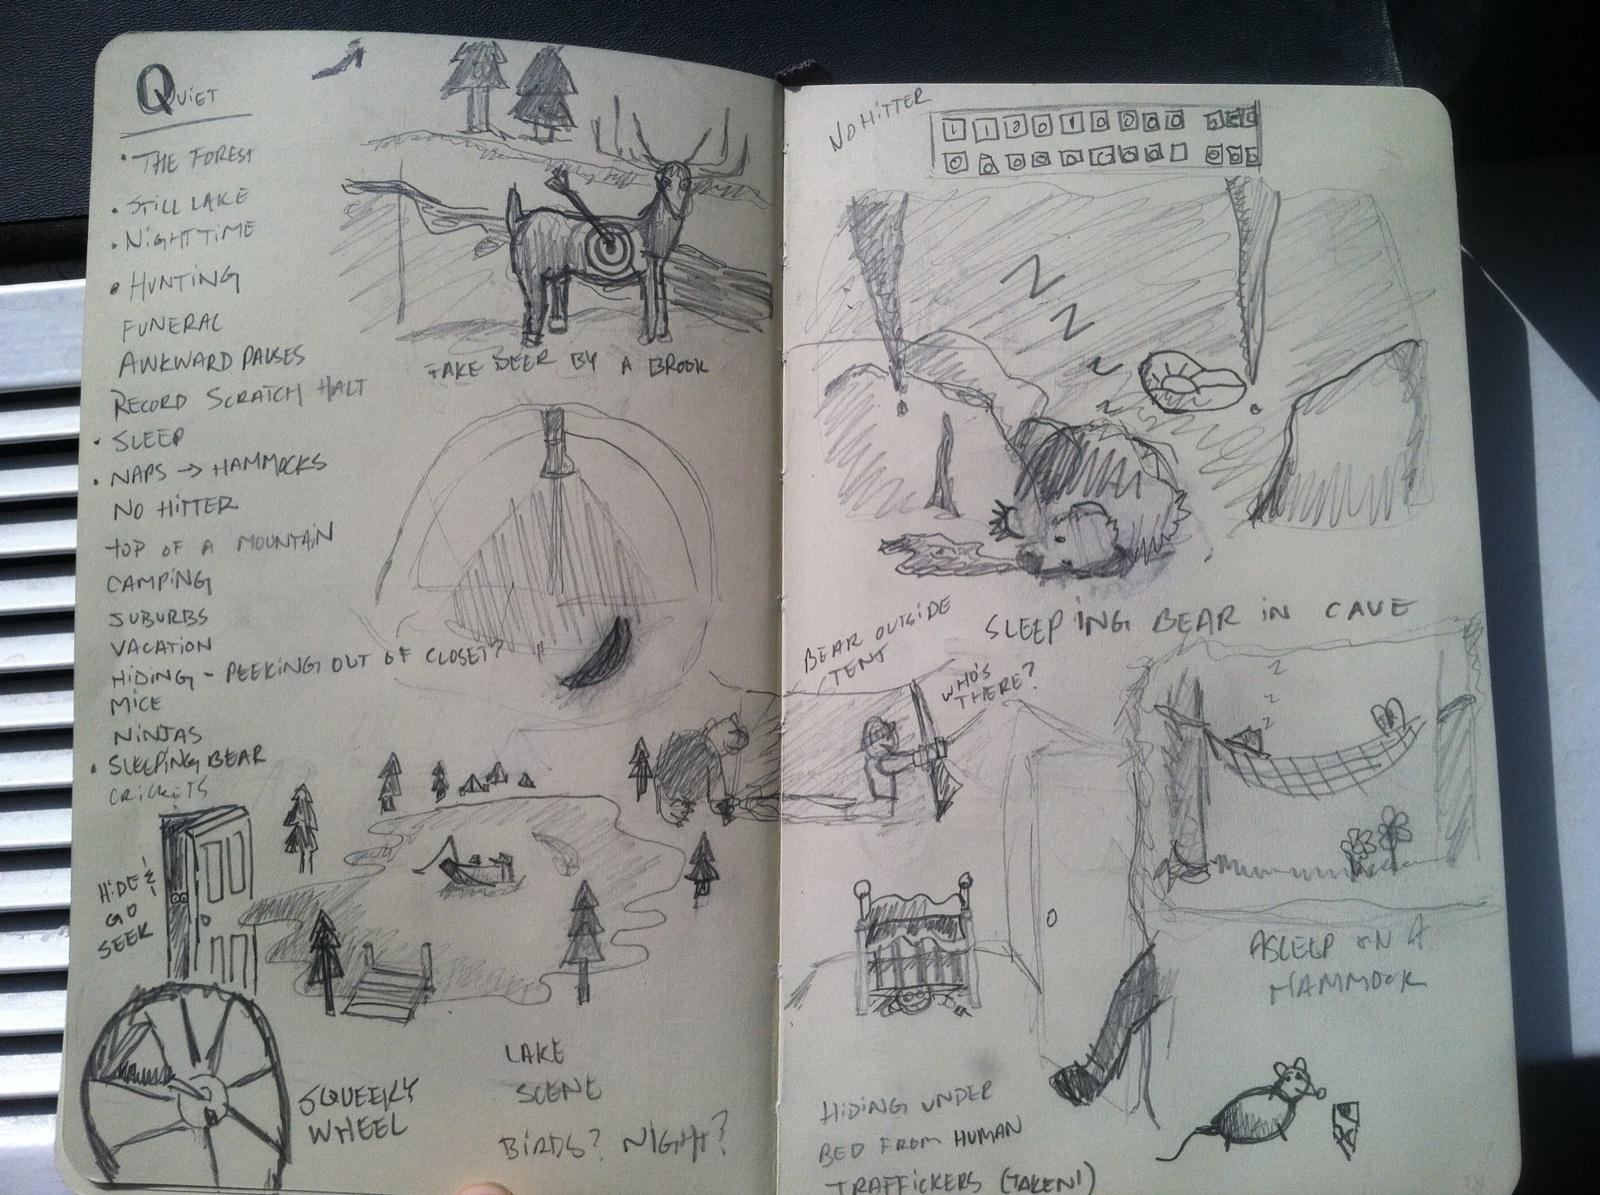 Quiet
• THE FOREST
• STILL LAKE
• NIGHTTIME
• HUNTING
FUNERAL
AWKWARD PAUSES
RECORD SCRATCH HALT
• SLEEP
• NAPS → HAMMOCKS
NO HITTER
TOP OF A MOUNTAIN
CAMPING
SUBURBS
VACATION
HIDING - PEEKING OUT OF CLOSET?
MICE
NINJAS
• SLEEPING BEAR
CRICKETS
FAKE DEER BY A BROOK
HIDE &
GO
SEEK
SQUEEKY
WHEEL
LAKE
SCENE
BIRDS? NIGHT?
NO HITTER
Z
Z
Z
Z
Z
SLEEPING BEAR IN CAVE
BEAR OUTSIDE
TENT
WHO'S
THERE?
Z
Z
Z
ASLEEP ON A
HAMMOCK
HIDING UNDER
BED FROM HUMAN
TRAFFICKERS (TAKEN!)